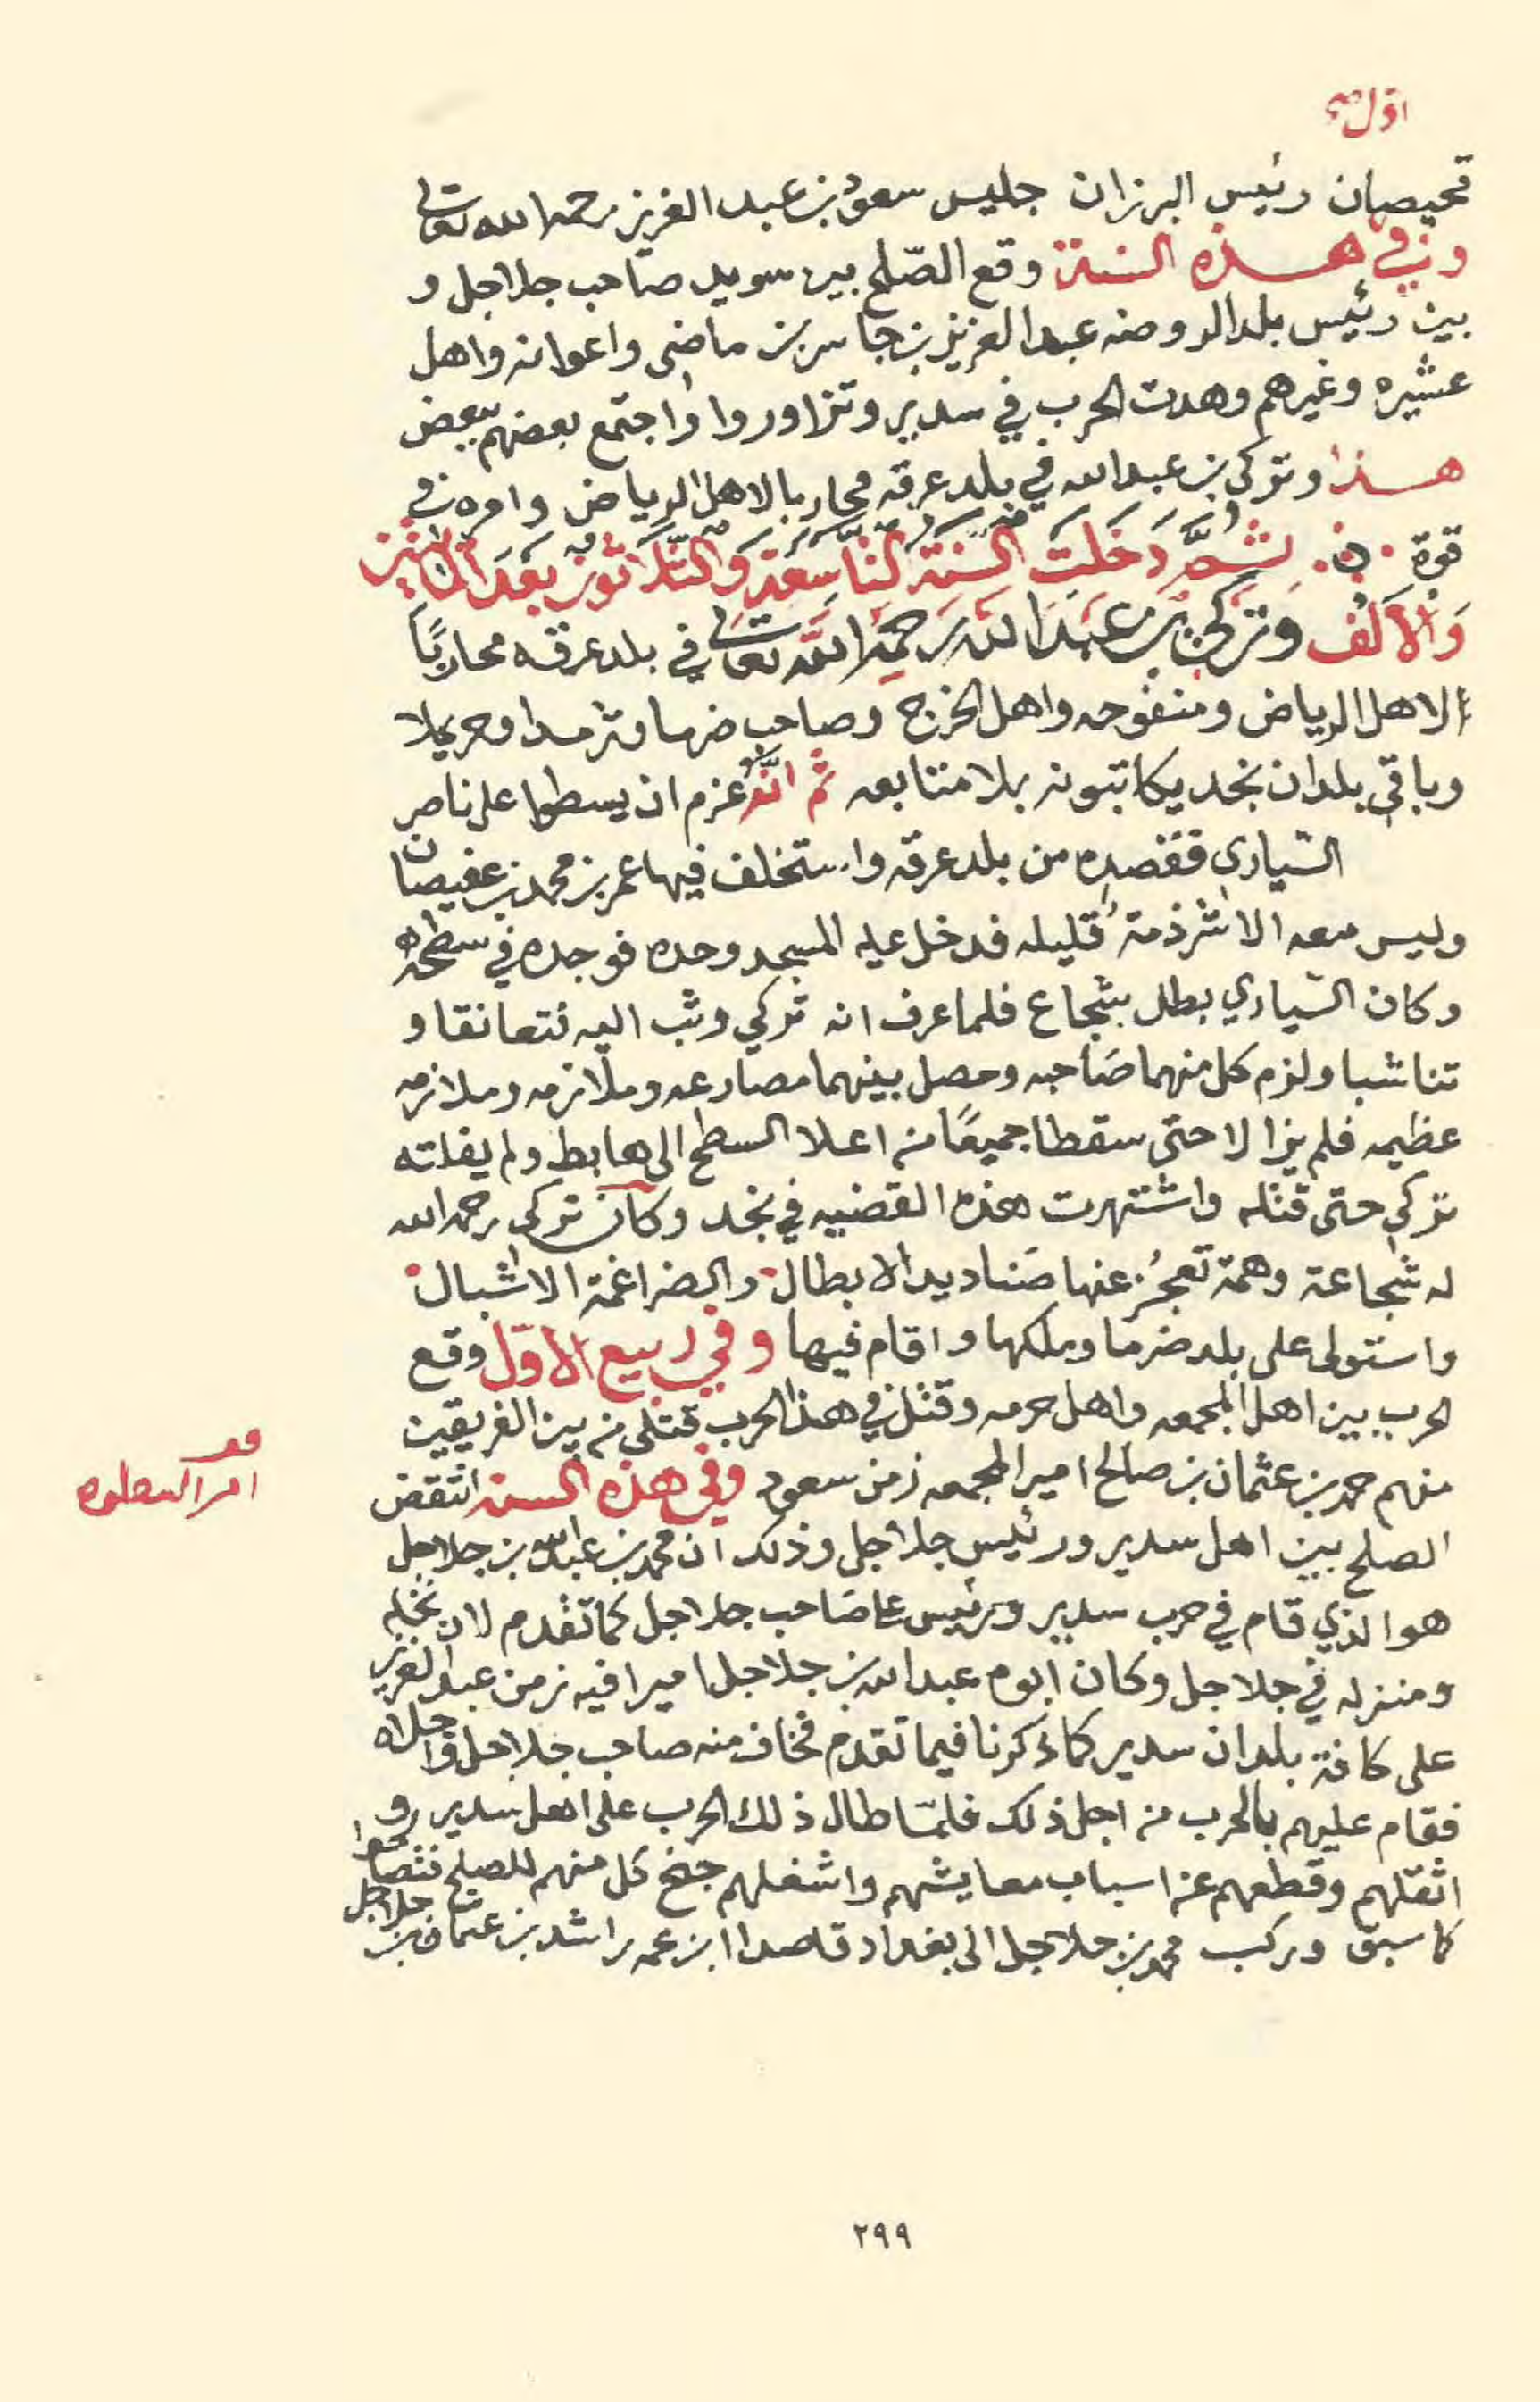 اول
قحيصان رئيس البرزان جليس سعود بن عبد العزيز رحمه الله تعالى
وفي هذه السنة وقع الصّلح بين سويد صاحب جلاجل و
بين رئيس بلد الروضه عبد العزيز بن جاسر بن ماضي واعوانه واهل
عشيره وغيرهم وهدت الحرب في سدير وتزاوروا واجتمع بعضهم ببعض
هذا وتركي بن عبد الله في بلد عرقه محاربا لاهل الرياض وامره في
قوة ثُمَّ دَخَلَتِ السنة التاسعة والثلاثون بعد المائتين
وَالأَلف وتركي بن عبد الله رحمه الله تعالى في بلد عرقه محاربًا
لاهل الرياض ومنفوحه واهل الخرج وصاحب ضرما وثرمدا وحريملا
وباقي بلدان نجد يكاتبونه بلا متابعه ثم انّه عزم ان يسطوا على ناصر
السّياري فقصده من بلد عرقه واستخلف فيها عمر بن محمد بن عفيصان
وليس معه الا شرذمة قليله فدخل عليه المسجد وحده فوجده في سطحه
وكان السّياري بطل شجاع فلما عرف انه تركي وثب اليه فتعانقا و
تناشبا ولزم كل منهما صَاحبه وحصل بينهما مصارعه وملازمه وملازمه
عظيمه فلم يزالا حتى سقطا جميعًا من اعلا السطح الى هابط ولم يفلته
تركي حتى قتله واشتهرت هذه القضيه في نجد وكان تركي رحمه الله
له شجاعة وهمة تعجز عنها صَناديد الابطال والضراغمة الاشبال
واستولى على بلد ضرما وملكها واقام فيها وفي ربيع الاوّل وقع
الحرب بين اهل المجمعه واهل حرمه وقتل في هذا الحرب قتلى من بين الفريقين
منهم حمد بن عثمان بن صالح امير المجمعه زمن سعود وفي هذه السنه انتقض
الصلح بين اهل سدير ورئيس جلاجل وذلك ان محمد بن عبد الله بن جلاجل
هو الذي قام في حرب سدير ورئيس على صَاحب جلاجل كما تقدم لان نخله
ومنزله في جلاجل وكان ابوه عبد الله بن جلاجل اميرا فيه زمن عبد العزيز
على كافة بلدان سدير كما ذكرنا فيما تقدم فخاف منه صاحب جلاجل واجلاه
فقام عليهم بالحرب من اجل ذلك فلمّا طال ذلك الحرب على اهل سدير و
اثقلهم وقطعهم عن اسباب معايشهم واشغلهم جنح كل منهم للصلح فتصالحوا
كما سبق وركب محمد بن جلاجل الى بغداد قاصدا ابن عمه راشد بن عثمان بن جلاجل
٢٩٩